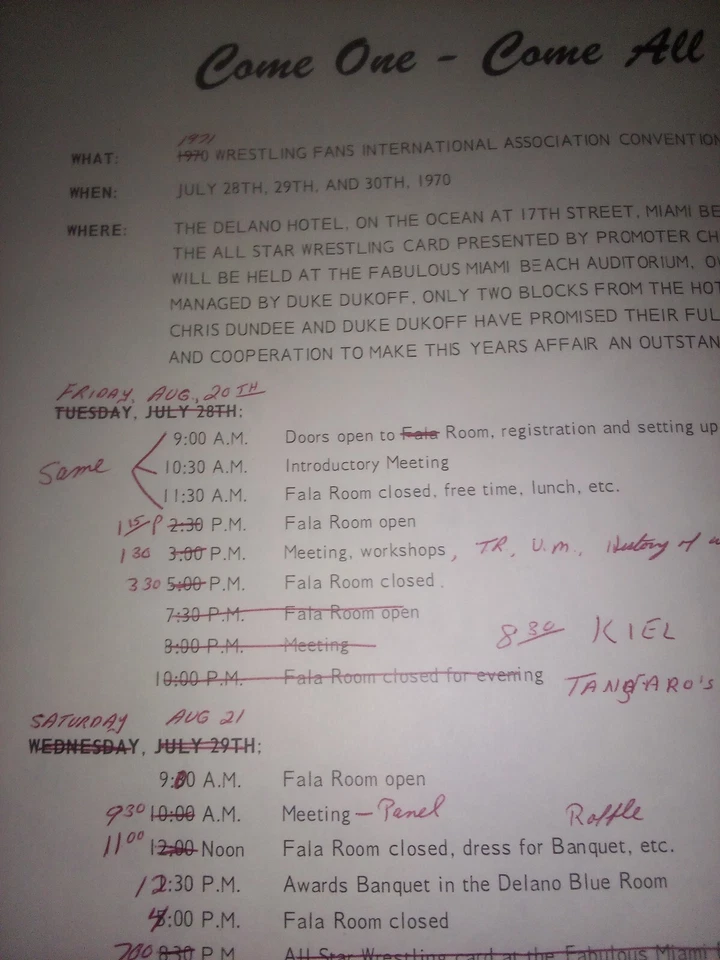 Come One - Come All
1971
WHAT: 1970 WRESTLING FANS INTERNATIONAL ASSOCIATION CONVENTION
WHEN: JULY 28TH, 29TH, AND 30TH, 1970
WHERE: THE DELANO HOTEL, ON THE OCEAN AT 17TH STREET, MIAMI BE
THE ALL STAR WRESTLING CARD PRESENTED BY PROMOTER CH
WILL BE HELD AT THE FABULOUS MIAMI BEACH AUDITORIUM, O
MANAGED BY DUKE DUKOFF, ONLY TWO BLOCKS FROM THE HOT
CHRIS DUNDEE AND DUKE DUKOFF HAVE PROMISED THEIR FUL
AND COOPERATION TO MAKE THIS YEARS AFFAIR AN OUTSTAN
FRIDAY, AUG., 20TH
TUESDAY, JULY 28TH:
9:00 A.M. Doors open to Fala Room, registration and setting up
Same 10:30 A.M. Introductory Meeting
11:30 A.M. Fala Room closed, free time, lunch, etc.
1 15 P 2:30 P.M. Fala Room open
1 30 3:00 P.M. Meeting, workshops, TR, U.M., History of w
3 30 5:00 P.M. Fala Room closed.
7:30 P.M. Fala Room open
8:00 P.M. Meeting 8 30 KIEL
10:00 P.M. Fala Room closed for evening TANGARO'S
SATURDAY AUG 21
WEDNESDAY, JULY 29TH:
9:00 A.M. Fala Room open
9 30 10:00 A.M. Meeting — Panel Raffle
11 00 12:00 Noon Fala Room closed, dress for Banquet, etc.
12:30 P.M. Awards Banquet in the Delano Blue Room
4:00 P.M. Fala Room closed
7 00 8:30 P.M. All Star Wrestling card at the Fabulous Miami